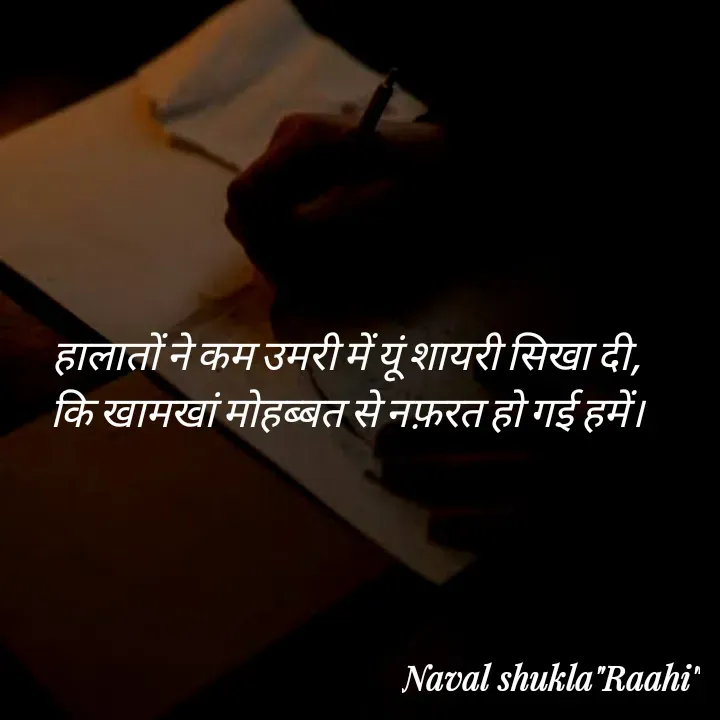 हालातों ने कम उमरी में यूं शायरी सिखा दी,
कि खामखां मोहब्बत से नफ़रत हो गई हमें।
Naval shukla"Raahi"